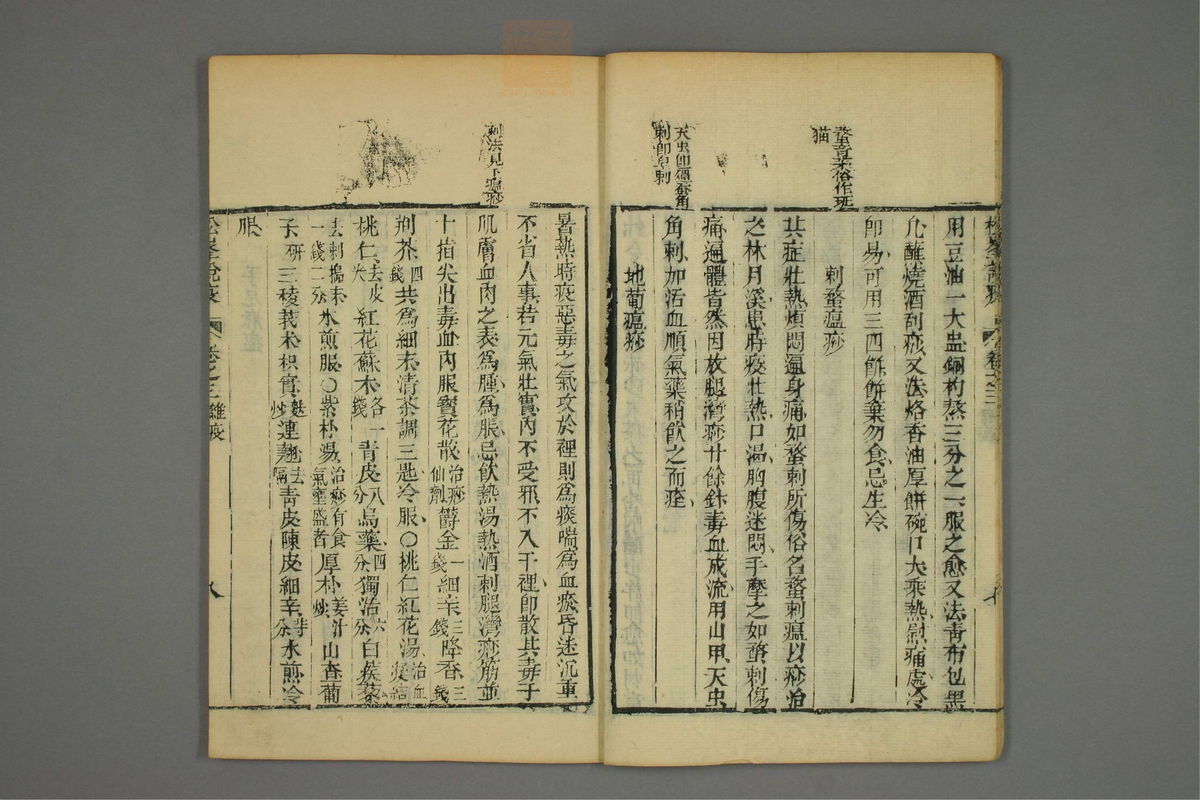 用豆油一大盅銅杓熬三分之一服之愈又法青布包墨
允蘸燒酒刮痧又法烙香油厚餅碗口大乘熱慰痛處冷
即易可用三四餅餅棄勿食忌生冷
刺螫瘟痧
其症壯熱煩悶遍身痛如螫刺所傷俗名螫刺瘟以痧治
之林月溪患時疫壯熱口渴胸腹迷悶手摩之如螫刺傷
痛逼體皆然因放腿灣痧廿餘針毒血成流用山甲天虫
角刺加活血順氣藥稍飲之而痊
地葡瘟痧
螫音柔俗作班
猫
天虫即殭蠶角
刺即皂刺
暑熱時疫惡毒之氣攻於裡則為痰喘為血瘀昏迷沉重
不省人事若元氣壯實內不受邪不入于裡即散其毒于
肌膚血肉之表為腫為脹忌飲熱湯熱酒刺腿灣痧筋並
十指尖出毒血內服寶花散治痧仙劑鬱金一錢細辛三錢降香三錢
荊芥四錢共為細末清茶調三匙冷服〇桃仁紅花湯治血瘀結
桃仁去皮尖紅花蘇木各一錢青皮八分烏藥四分獨活六分白蒺藜
去刺搗末一錢二分水煎服〇紫朴湯治痧有食氣壅盛者厚朴姜汁炒山查葡
子研三稜莪朮枳實麩炒連翹去隔青皮陳皮細辛等分水煎冷
服
刺法見下瘟痧
松峯說疫
卷之三雜疫
八